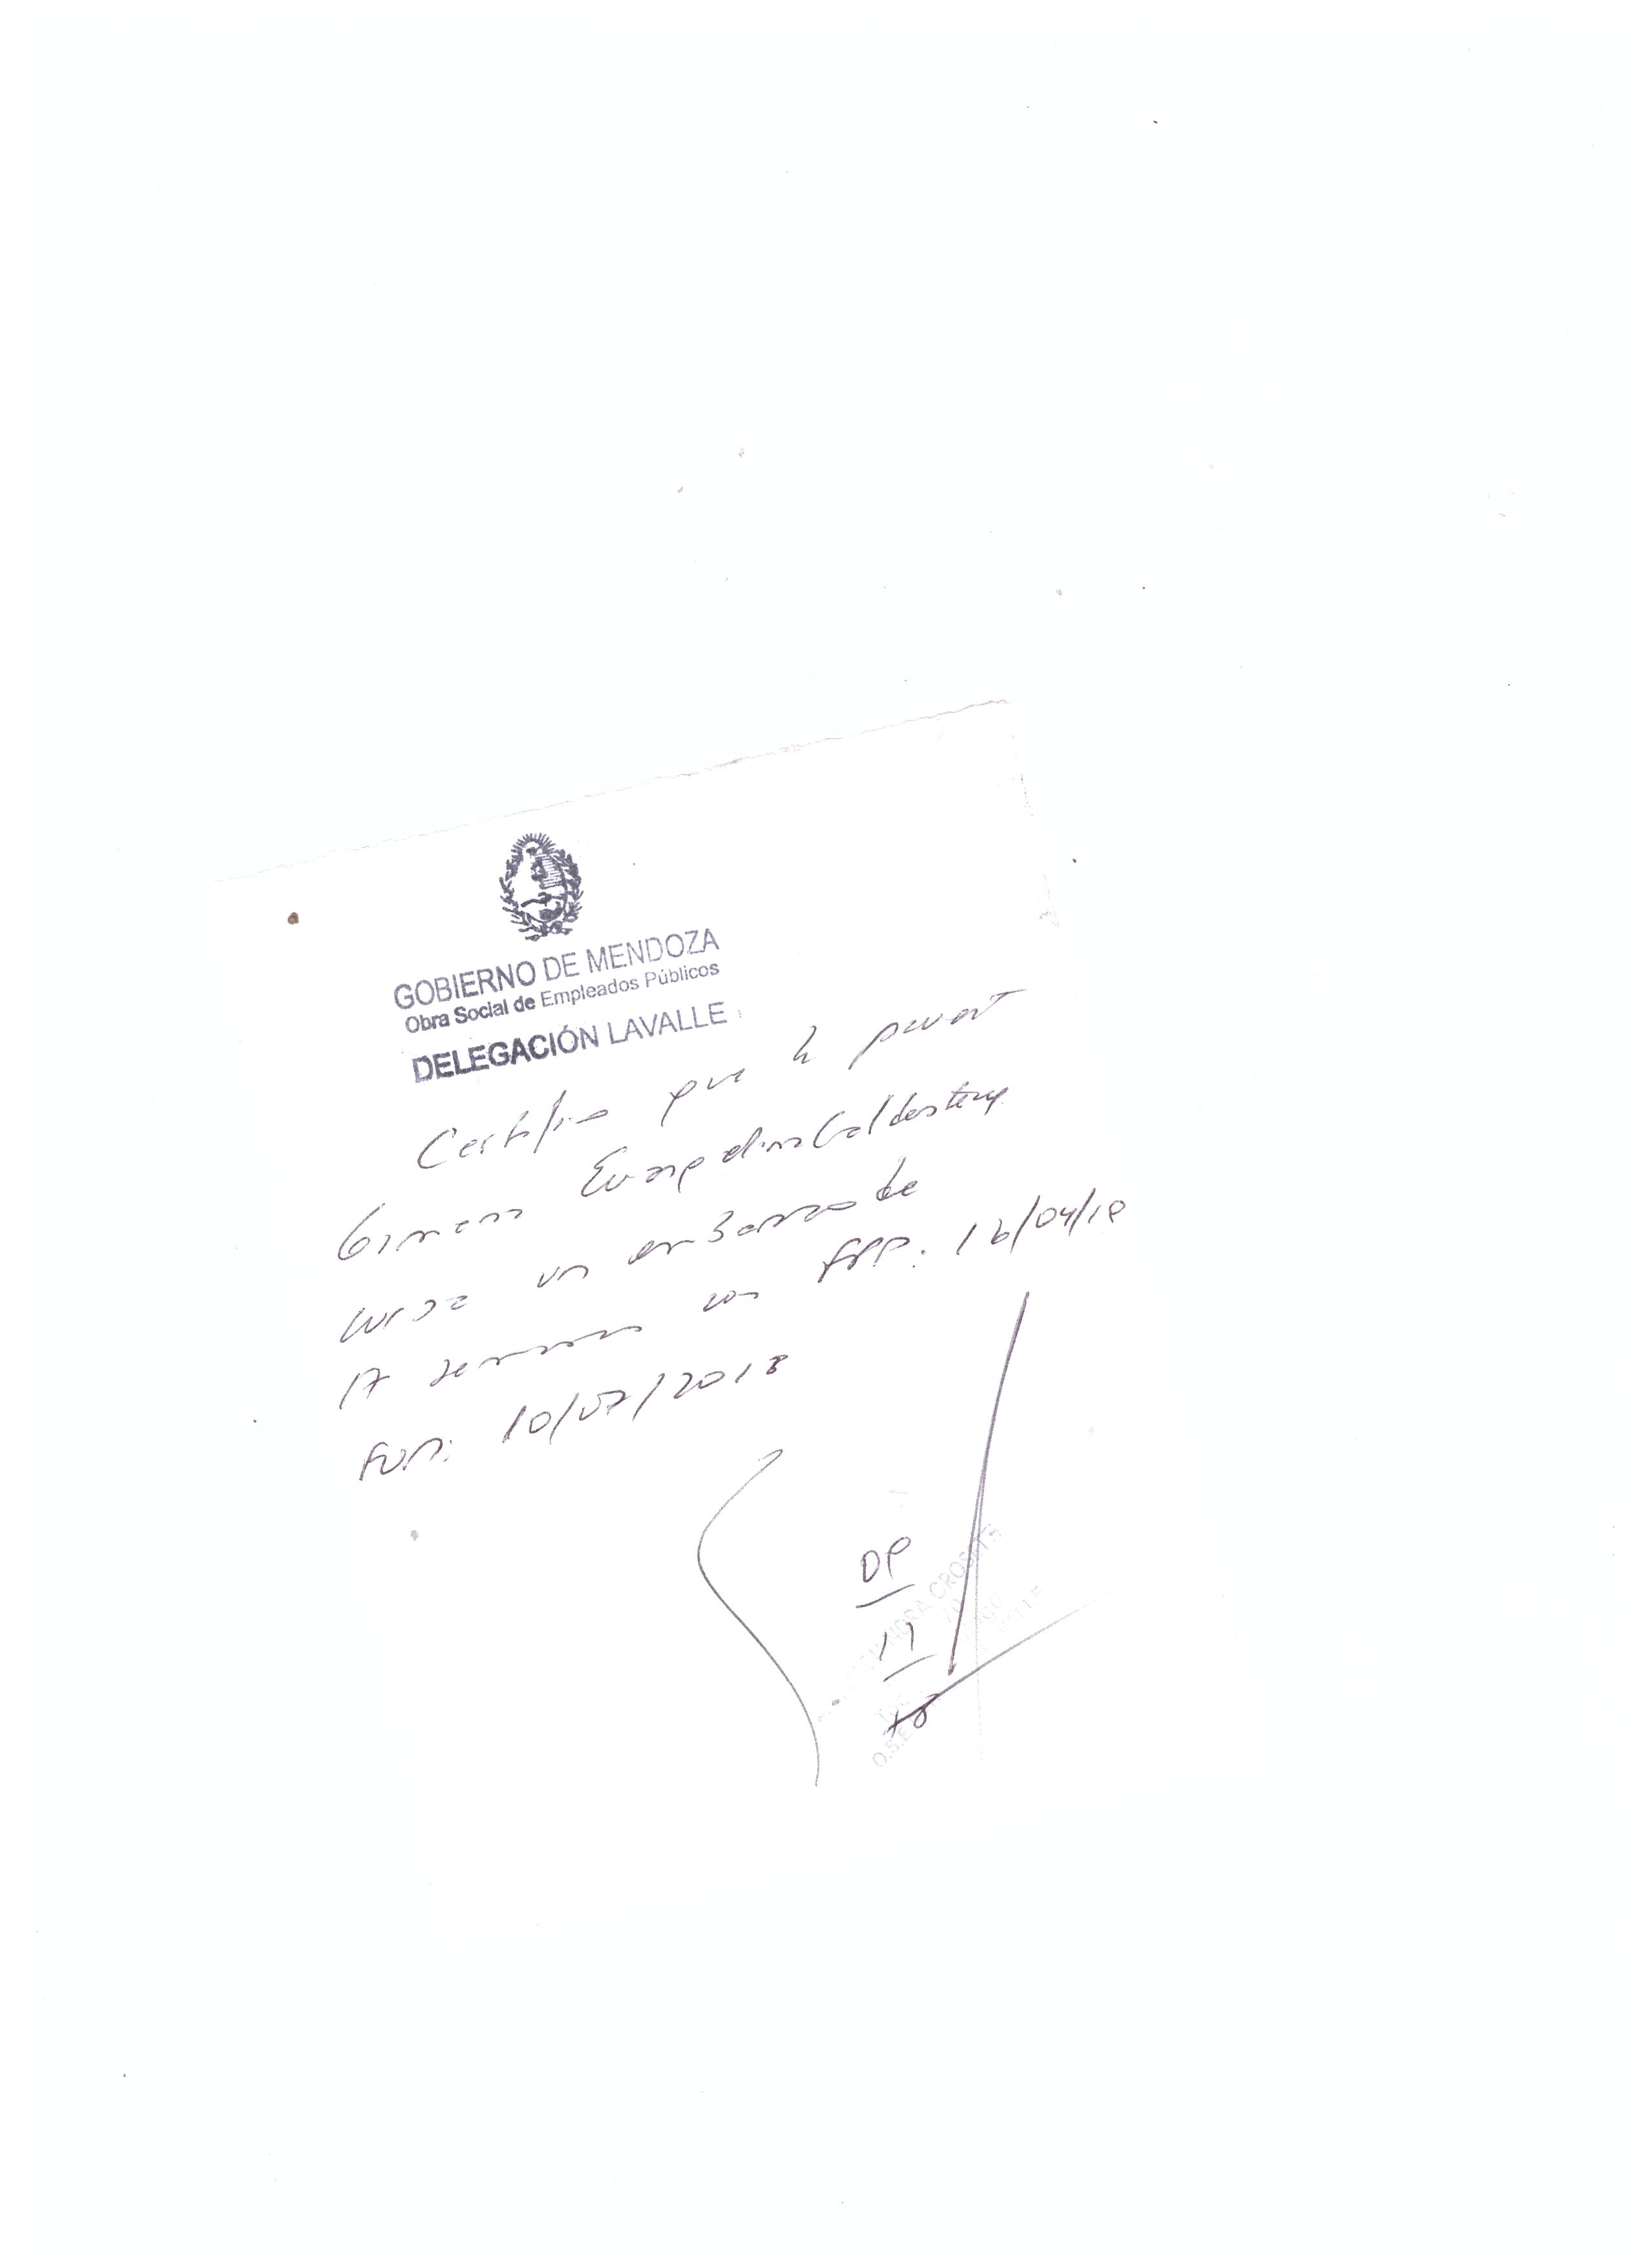 GOBIERNO DE MENDOZA
Obra Social de Empleados Públicos
DELEGACIÓN LAVALLE
Certifico que la
Gimena Evangelina
cursa un embarazo de
17 semanas con FPP: 16/04/19
FUM: 10/07/2018
09
11
18
CROS
O.S.E